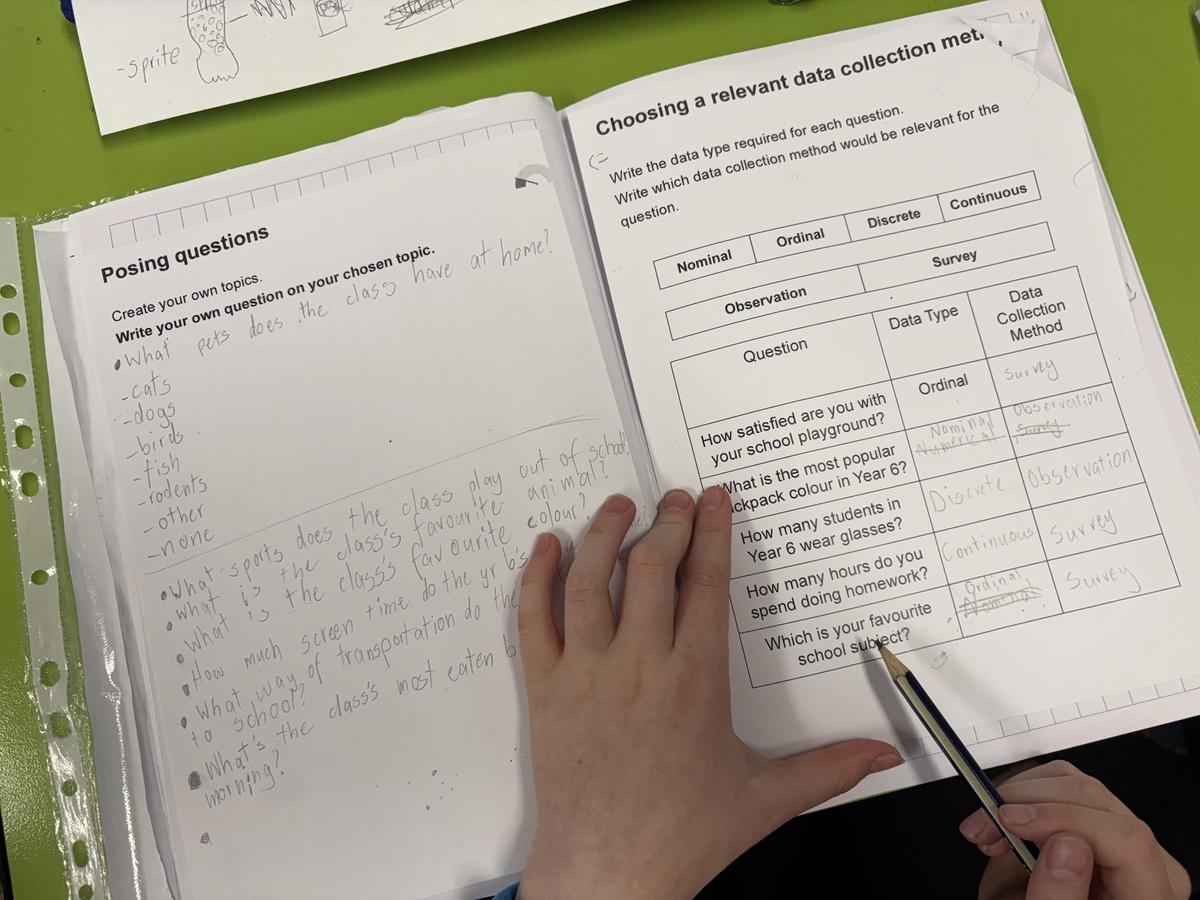 -sprite
Posing questions
Create your own topics.
Write your own question on your chosen topic.
•What pets does the class have at home?
-cats
-dogs
-birds
-fish
-rodents
-other
-none
•What sports does the class play out of school?
•what is the class's favourite animal?
•What is the class's favourite colour?
•How much screen time do the yr 6's
•What way of transportation do the
to school?
•What's the class's most eaten
morning?
Choosing a relevant data collection
Write the data type required for each question.
Write which data collection method would be relevant for the
question.
Nominal Ordinal Discrete Continuous
Observation Survey
Question Data Type Data
Collection
Method
How satisfied are you with
your school playground? Ordinal Survey
What is the most popular
backpack colour in Year 6? Nominal Numerical Observation Survey
How many students in
Year 6 wear glasses? Discrete Observation
How many hours do you
spend doing homework? Continuous Survey
Which is your favourite
school subject? Ordinal Nominal Survey